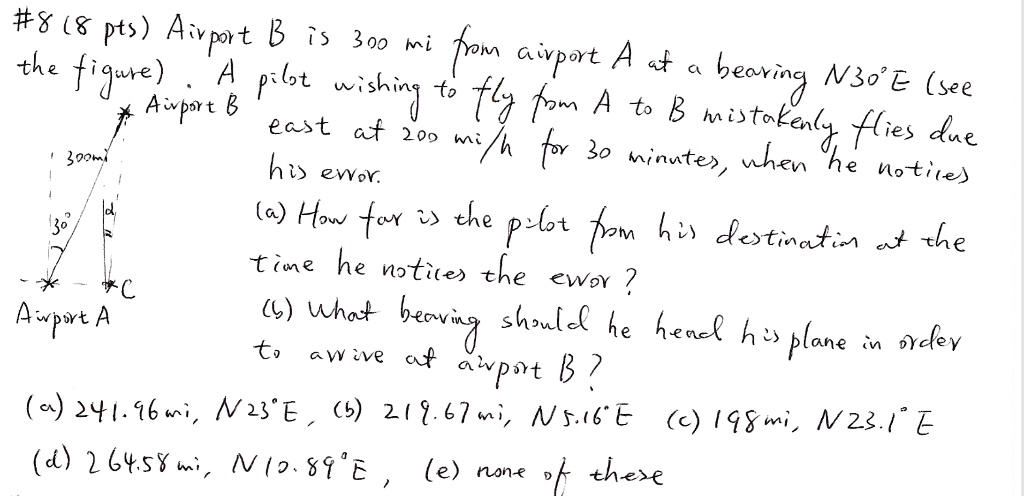 #8 (8 pts) Airport B is 300 mi from airport A at a bearing N30°E (see
the figure). A pilot wishing to fly from A to B mistakenly flies due
Airport B
east at 200 mi/h for 30 minutes, when he notices
300mi
his error.
30°
d
(a) How far is the pilot from his destination at the
time he notices the error?
C
Airport A
(b) What bearing should he head his plane in order
to arrive at airport B?
(a) 241.96 mi, N23°E, (b) 219.67 mi, N5.16°E (c) 198 mi, N23.1°E
(d) 264.58 mi, N10.89°E, (e) none of these